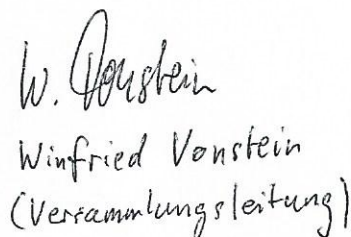 W. Vonstein
Winfried Vonstein
(Versammlungsleitung)